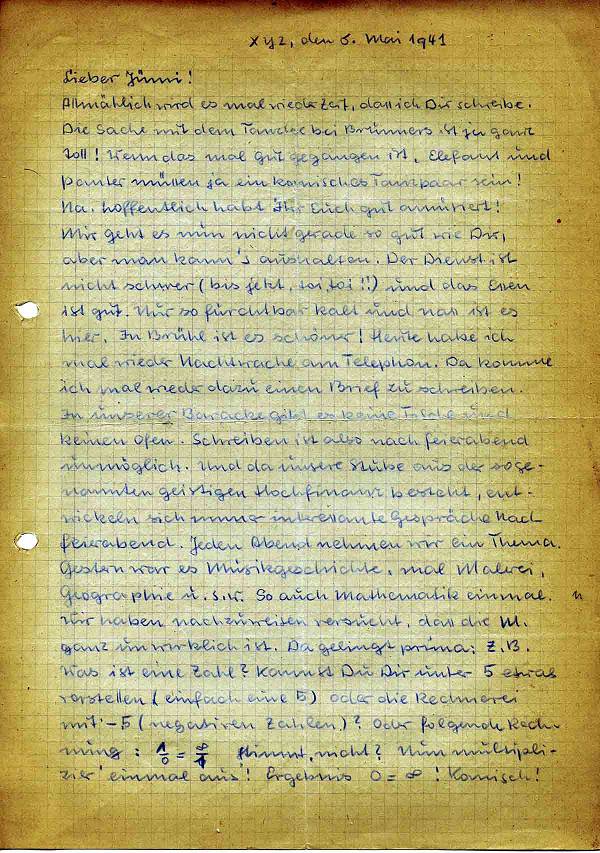 xyz, den 5. Mai 1941
Lieber Jünni!
Allmählich wird es mal wieder Zeit, dass ich Dir schreibe.
Die Sache mit dem Tanztee bei Brünners ist ja ganz
toll! Wenn das mal gut gegangen ist, Elefant und
Panter müssen ja ein komisches Tanzpaar sein!
Na. hoffentlich habt Ihr Euch gut amüsiert!
Mir geht es nun nicht gerade so gut wie Dir,
aber man kann's aushalten. Der Dienst ist
nicht schwer (bis jetzt, toi, toi!!) und das Essen
ist gut. Nur so furchtbar kalt und nass ist es
hier. In Brühl ist es schöner! Heute habe ich
mal wieder Nachtwache am Telephon. Da komme
ich mal wieder dazu einen Brief zu schreiben.
In unserer Baracke gibt es keine Tische und
keinen Ofen. Schreiben ist also nach feierabend
unmöglich. Und da unsere Stube aus der soge-
nannten geistigen Hochfinanz besteht, ent-
wickeln sich immer interessante Gespräche nach
feierabend. Jeden Abend nehmen wir ein Thema.
Gestern war es Musikgeschichte, mal Malerei,
Geographie u.s.w. So auch Mathematik einmal.
Wir haben nachzuweisen versucht, dass die M.
ganz unwirklich ist. Da gelingt prima: Z.B.
Was ist eine Zahl? Kannst Du Dir unter 5 etwas
vorstellen (einfach eine 5) oder die Rechnerei
mit -5 (negativen Zahlen)? Oder folgende Rech-
nung: 1/0 = ∞/1 stimmt, nicht? Nun multipli-
zier' einmal aus! Ergebnis 0 = ∞! Komisch!